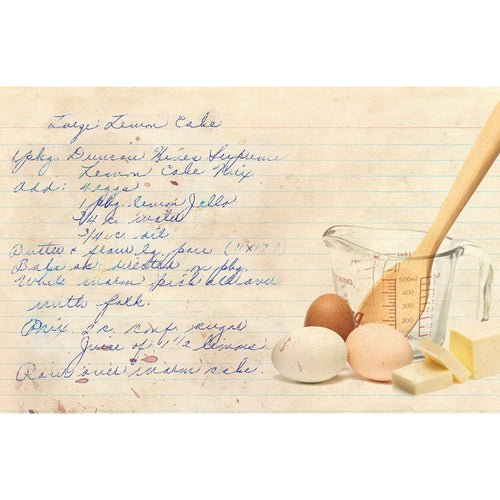 Large Lemon Cake
1 pkg. Duncan Hines Supreme
Lemon Cake Mix
Add: 4 eggs
1 pkg. lemon Jello
3/4 c. water
3/4 c. oil
Butter & flour lg. pan
Bake as directed on pkg.
While warm pick all over
with fork.
Mix. 2 c. conf. sugar
Juice of 1 1/2 lemons
Pour over warm cake.
500ml
400
300
200